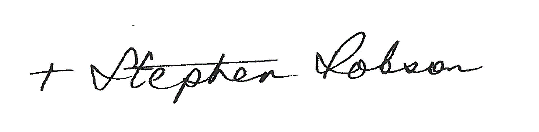 + Stephen Robson